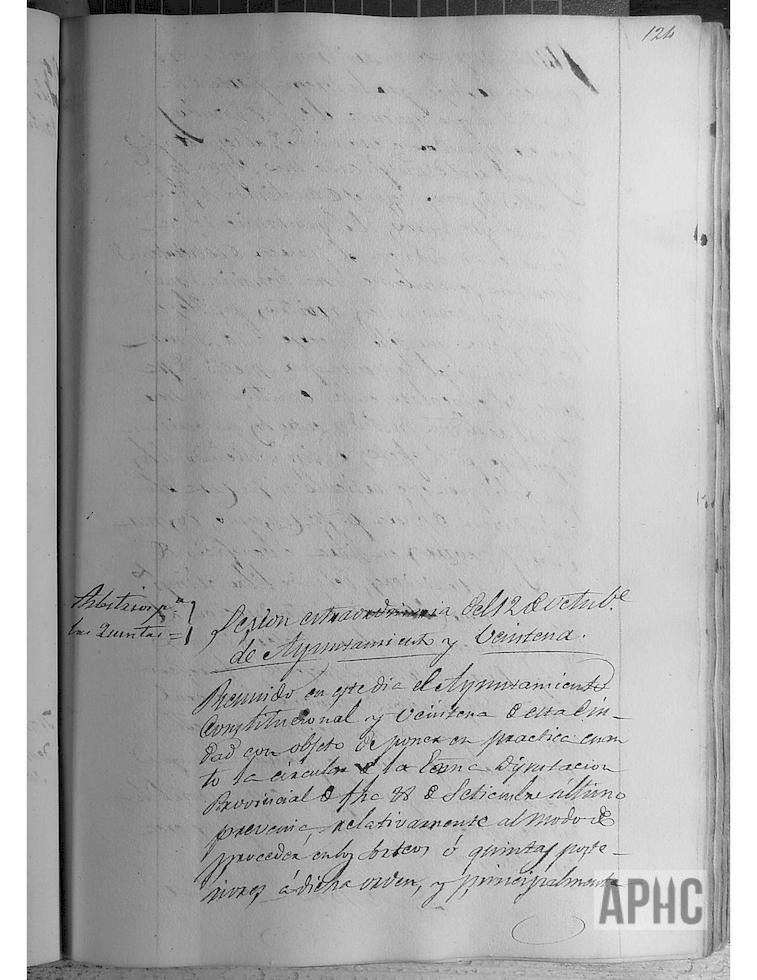 124
Arbitrios p.ª
las Quintas =
Sesion extraordinaria del 12 de Octub.e
de Ayuntamiento y Veintena.
Reunido en este dia el Ayuntamiento
Constitucional y Veintena de esta Ciu-
dad con objeto de poner en practica cuan
to la circular de la Exma Diputacion
Provincial de fha 28 de Setiembre ultimo
previene, relativamente al modo de
proceder en los sorteos ó quintas poste-
riores á dicha orden, y principalmente
APHC